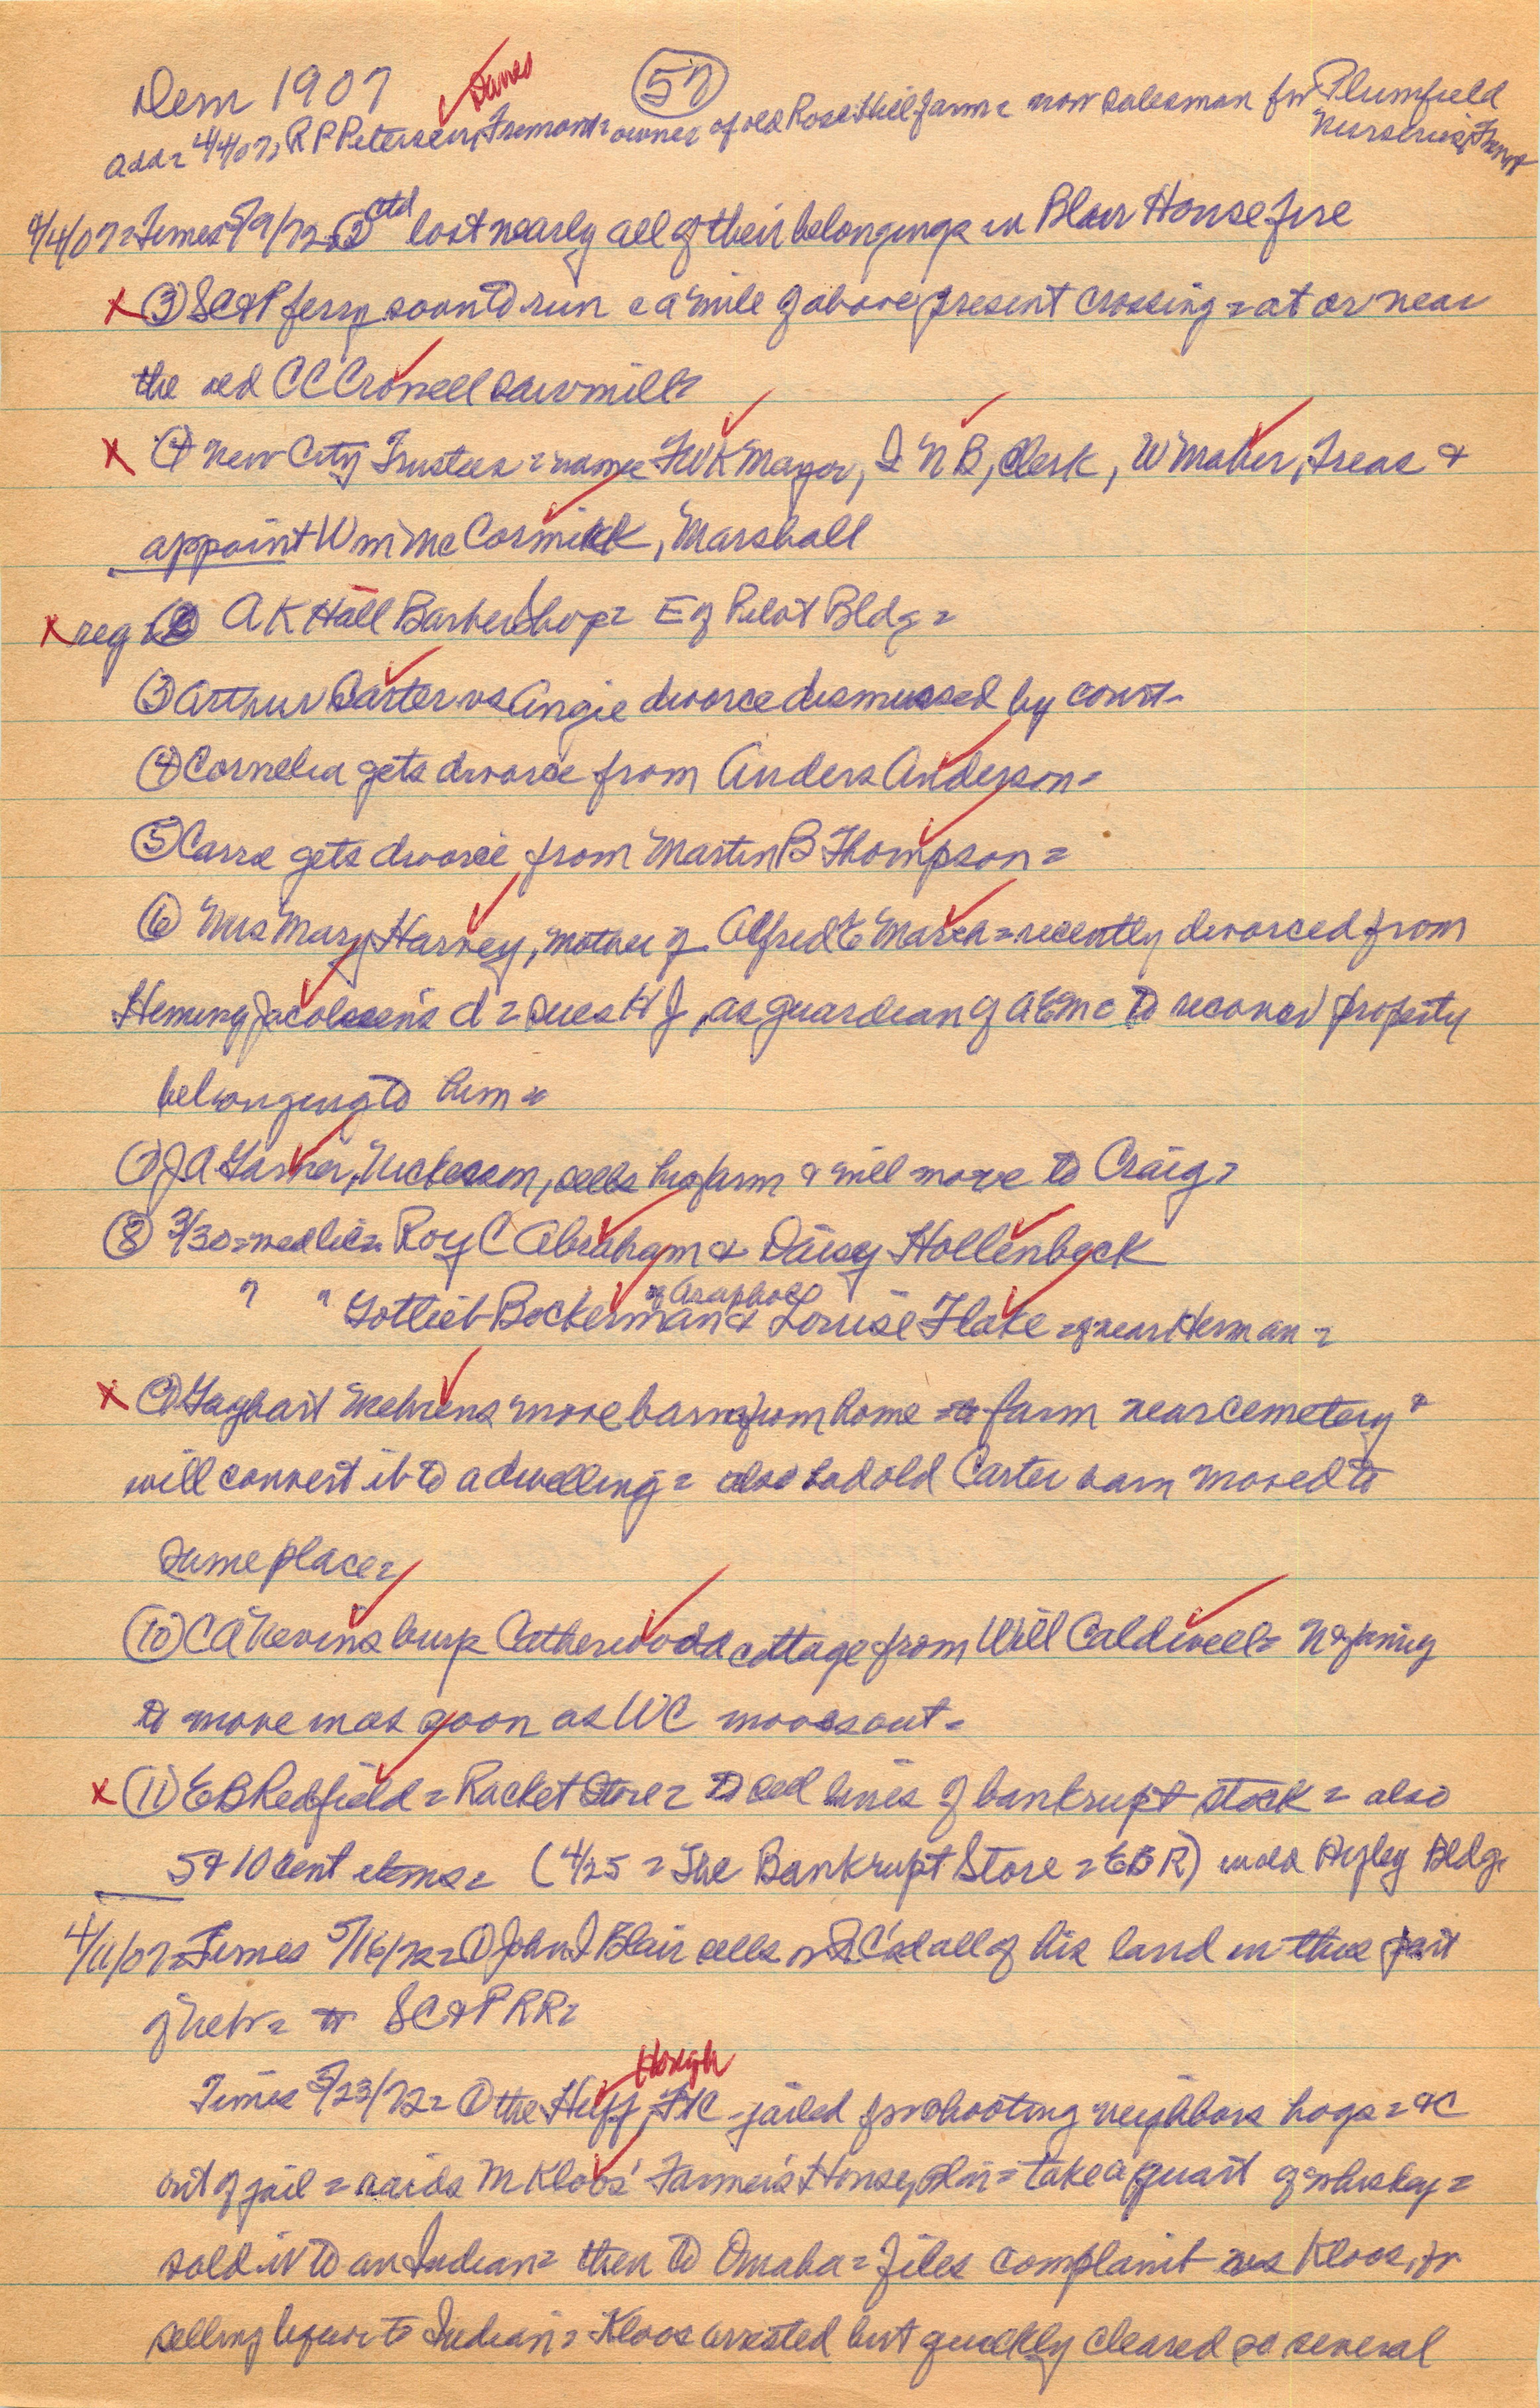 Dem 1907 Danes 57
add = 4/4/07 = R P Petersen, Fremont = owner of old Rose Hill farm = now salesman for Plumfield
Nurseries, Fremont
4/4/07 = Times 5/9/72 = 2 ctd lost nearly all of their belongings in Blair House fire
x ③ SC&P ferry soon to run a mile above present crossing = at or near
the old CC Crowell sawmill =
x ④ New City Trustees = name FWK Mayor, I N B, Clerk, W Maher, Treas &
appoint Wm McCormick, Marshall
x reg = ② A K Hall Barber Shop = E of Pilot Bldg =
③ Arthur Carter vs Angie divorce dismissed by court =
④ Cornelia gets divorce from Anders Anderson =
⑤ Carrie gets divorce from Martin B Thompson =
⑥ Mrs Mary Harvey, mother of Alfred E = recently divorced from
Heming Jacobsen = sues H J, as guardian of to recover property
belonging to him =
⑦ J A, Nickerson, sells his farm & will move to Craig =
⑧ 3/30 = wed lic = Roy C Abraham & Daisy Hollenbeck
" " Gotlieb Bockerman of Arapahoe & Louise Flake = of near Herman =
x ⑨ Mehrens move barn from home to farm near cemetery &
will convert it to a dwelling = also had old Carter barn moved to
same place =
⑩ C A Nevins buys Catherwood cottage from Will Caldwell = N family
to move in as soon as WC moves out =
x ⑪ E B Redfield = Racket Store = to sell lines of bankrupt stock = also
5 & 10 cent items = (4/25 = The Bankrupt Store = EBR) in old Bldg.
4/11/07 = Times 5/16/72 = ① John I Blair sells all of his land in this part
of Nebr = to SC&P RR =
Hough
Times 5/23/72 = ① the Huff, jailed for shooting neighbors hogs =
out of jail = raids M Kloos' Farmer's House, Blair = take a quart of whiskey =
sold it to an Indian = then to Omaha = files complaint vs Kloos, for
selling liquor to Indian = Kloos arrested but quickly cleared as several